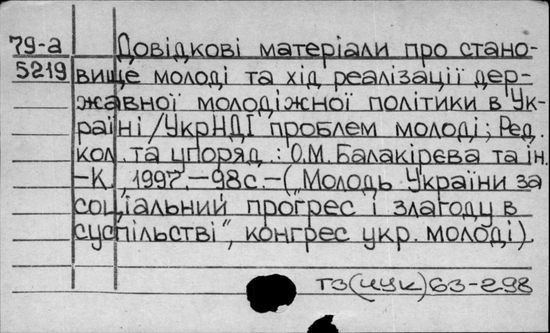 79-а Довідкові матеріали про стано-
5219 вище молоді та хід реалізації дер-
жавної молодіжної політики в Ук-
раїні / УкрНДІ проблем молоді; Ред.
кол. та упоряд.: О.М. Балакірєва та ін.
-К., 1997.-98с.-(„Молодь України за
соціальний прогрес і злагоду в
суспільстві", конгрес укр. молоді).
Т3(4УК)63-298